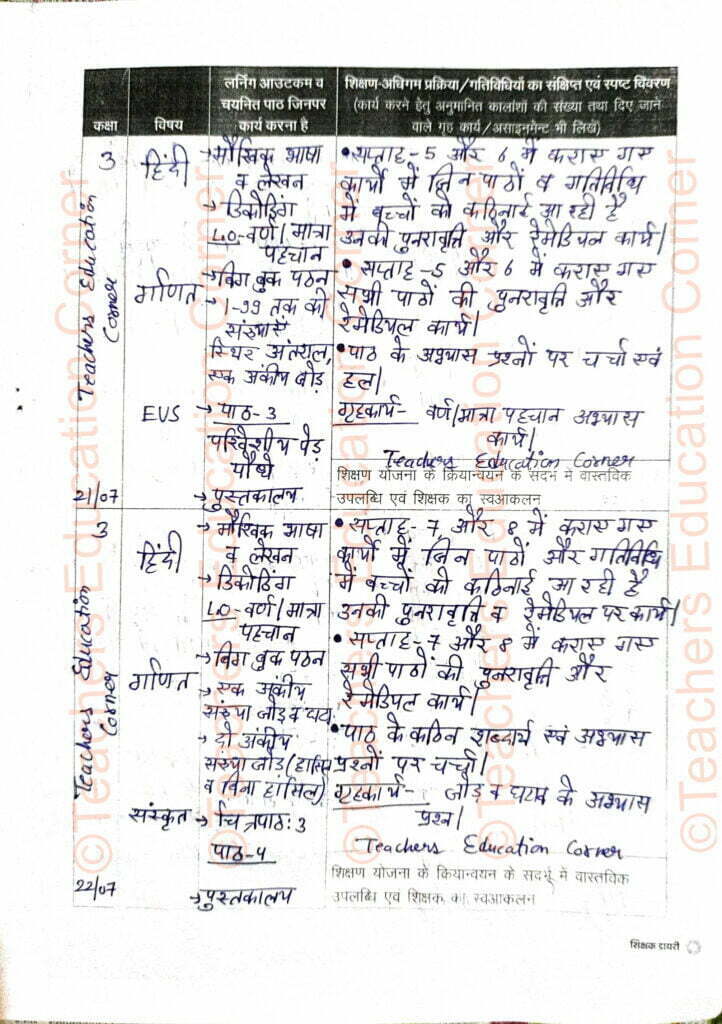 कक्षा
विषय
लर्निंग आउटकम व
चयनित पाठ जिनपर
कार्य करना है
शिक्षण-अधिगम प्रक्रिया/गतिविधियों का संक्षिप्त एवं स्पष्ट विवरण
(कार्य करने हेतु अनुमानित कालांशों की संख्या तथा दिए जाने
वाले गृह कार्य/असाइनमेन्ट भी लिखें)
3
Teachers Education
Corner
21/07
हिंदी
गणित
EVS
→ मौखिक भाषा
व लेखन
→ डिकोडिंग
LO-वर्ण/मात्रा
पहचान
→ बिग बुक पठन
→ 1-99 तक की
संख्याएँ
स्थिर अंतराल,
एक अंकीय जोड़
→ पाठ-3
परिवेशीय पेड़
पौधे
→ पुस्तकालय
• सप्ताह-5 और 6 में कराए गए
कार्यों में जिन पाठों व गतिविधि
में बच्चों को कठिनाई आ रही है
उनकी पुनरावृत्ति और रेमेडियल कार्य|
• सप्ताह-5 और 6 में कराए गए
सभी पाठों की पुनरावृत्ति और
रेमेडियल कार्य|
• पाठ के अभ्यास प्रश्नों पर चर्चा एवं
हल|
गृहकार्य- वर्ण/मात्रा पहचान अभ्यास
कार्य|
Teachers Education Corner
शिक्षण योजना के क्रियान्वयन के संदर्भ में वास्तविक
उपलब्धि एवं शिक्षक का स्वआकलन
3
Teachers Education
Corner
22/07
हिंदी
गणित
संस्कृत
→ मौखिक भाषा
व लेखन
→ डिकोडिंग
LO-वर्ण/मात्रा
पहचान
→ बिग बुक पठन
→ एक अंकीय
संख्या जोड़ व घटाव
→ दो अंकीय
संख्या जोड़ (हासिल
व बिना हासिल)
→ चित्रपाठ: 3
पाठ-4
→ पुस्तकालय
• सप्ताह-7 और 8 में कराए गए
कार्यों में जिन पाठों और गतिविधि
में बच्चों को कठिनाई आ रही है
उनकी पुनरावृत्ति व रेमेडियल पर कार्य|
• सप्ताह-7 और 8 में कराए गए
सभी पाठों की पुनरावृत्ति और
रेमेडियल कार्य|
• पाठ के कठिन शब्दार्थ एवं अभ्यास
प्रश्नों पर चर्चा|
गृहकार्य- जोड़ व घटाव के अभ्यास
प्रश्न|
Teachers Education Corner
शिक्षण योजना के क्रियान्वयन के संदर्भ में वास्तविक
उपलब्धि एवं शिक्षक का स्वआकलन
शिक्षक डायरी
©Teachers Education Corner
©Teachers Education Corner
©Teachers Education Corner
©Teachers Education Corner
©Teachers Education Corner